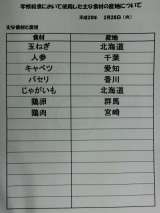 学校給食において使用した主な食材の産地について
平成28年 2月28日(火)
主な食材と産地
食材 産地
玉ねぎ 北海道
人参 千葉
キャベツ 愛知
パセリ 香川
じゃがいも 北海道
鶏卵 群馬
鶏肉 宮崎